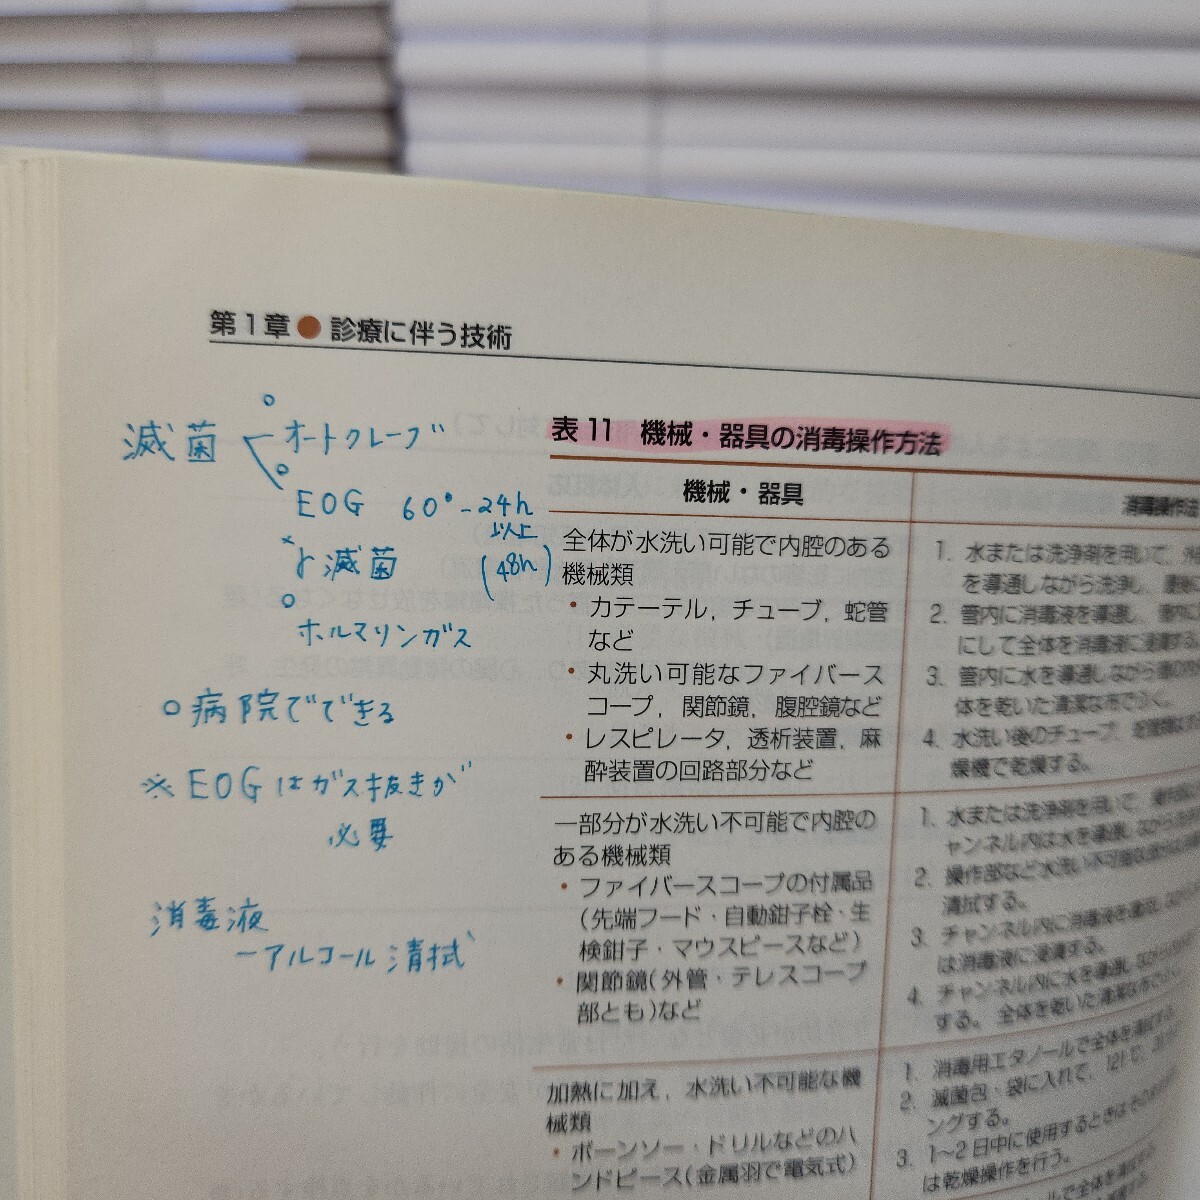 第1章●診療に伴う技術
滅菌
オートクレーブ
EOG 60°-24h
以上
(48h)
γ滅菌
ホルマリンガス
○病院でできる
※EOGはガス抜きが
必要
消毒液
ーアルコール清拭
表11 機械・器具の消毒操作方法
機械・器具
消毒操作法
全体が水洗い可能で内腔のある
機械類
・カテーテル，チューブ，蛇管
など
・丸洗い可能なファイバース
コープ，関節鏡，腹腔鏡など
・レスピレータ，透析装置，麻
酔装置の回路部分など
1. 水または洗浄剤を用いて，
を導通しながら洗浄し，
2. 管内に消毒液を導通し，管内
にして全体を消毒液に浸漬する
3. 管内に水を導通しながら
体を乾いた清潔な布でふく。
4. 水洗い後のチューブ，
燥機で乾燥する。
一部分が水洗い不可能で内腔の
ある機械類
・ファイバースコープの付属品
（先端フード・自動鉗子栓・生
検鉗子・マウスピースなど）
・関節鏡（外管・テレスコープ
部とも）など
1. 水または洗浄剤を用いて，
ャンネル内は水を導通しながら
2. 操作部など水洗い不可能な
清拭する。
3. チャンネル内に消毒液を
は消毒液に浸漬する。
4. チャンネル内に水を導通しながら
する。全体を乾いた清潔な布で
加熱に加え，水洗い不可能な機
械類
・ボーンソー・ドリルなどのハ
ンドピース（金属羽で電気式）
1. 消毒用エタノールで全体を清拭する。
2. 滅菌包・袋に入れて，121℃，
ングする。
3. 1〜2日中に使用するときは
は乾燥操作を行う。